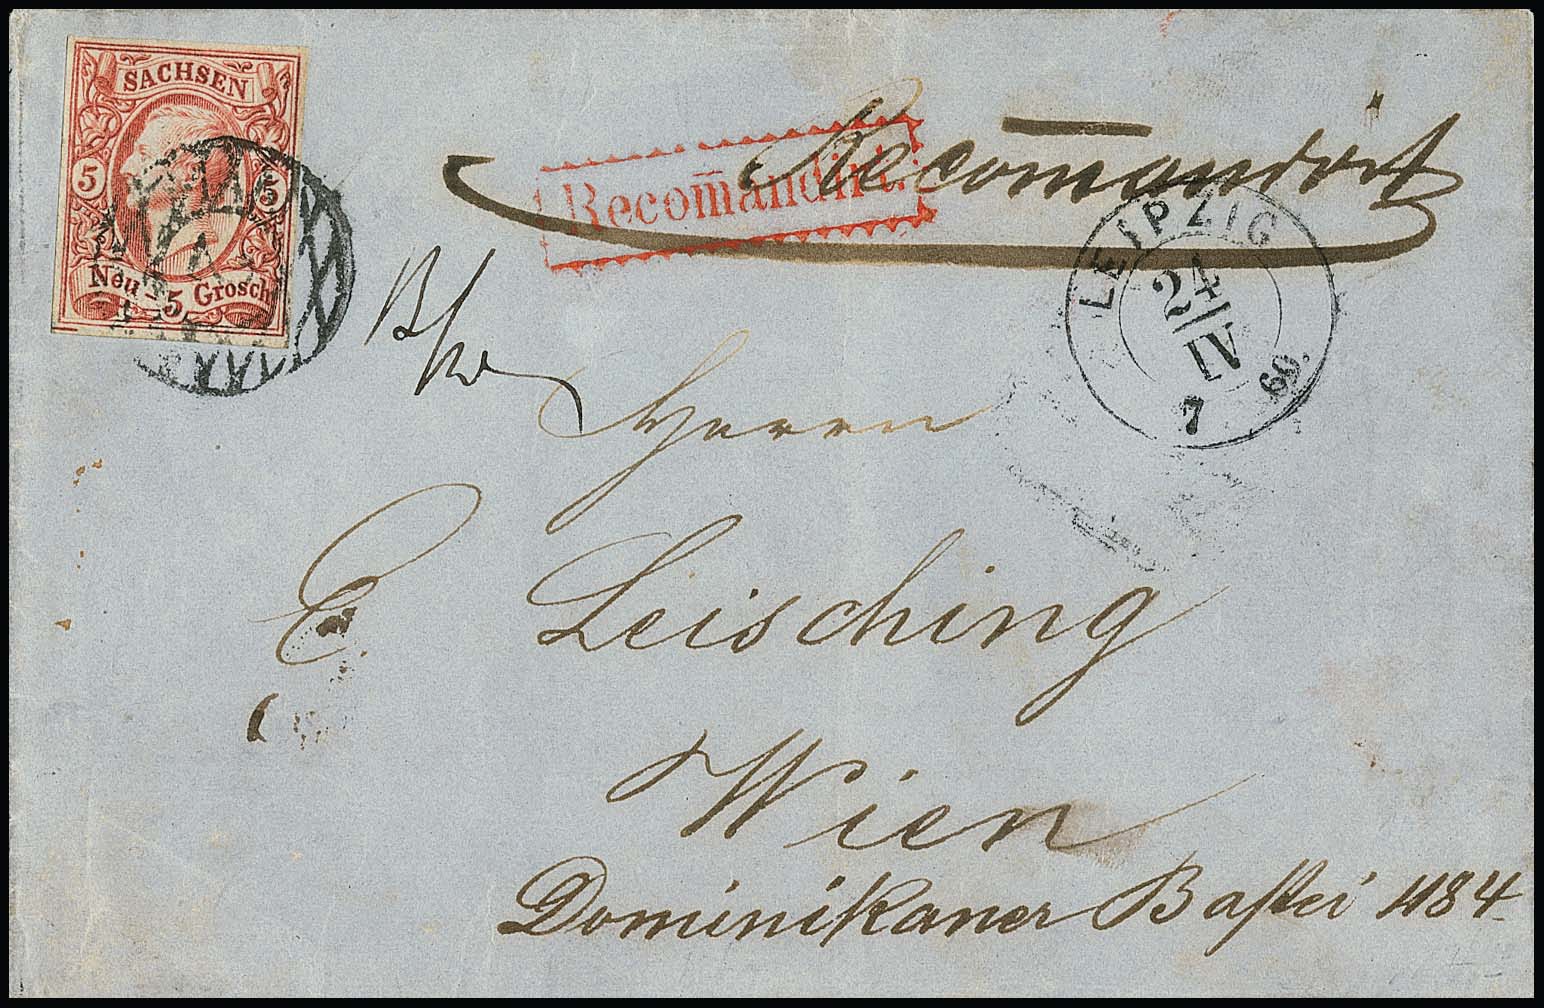 SACHSEN
5 5
Neu - 5 Grosch
Recom̅andirt.
Recom̅andirt
LEIPZIG
24
IV
7 60.
Herrn
E. Leisching
Wien
Dominikaner Bastei 1184